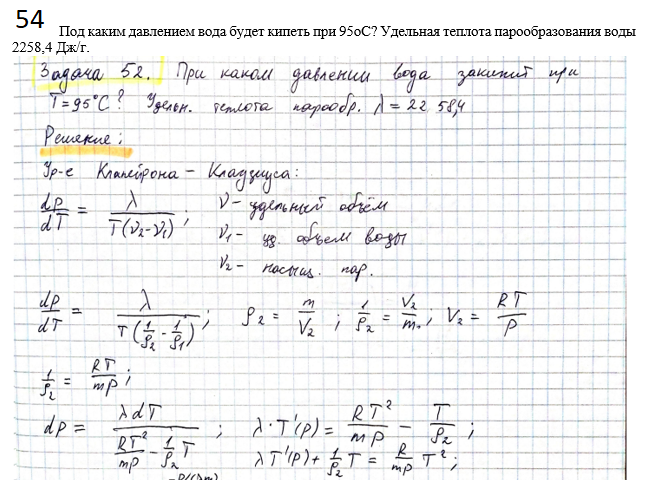 54
Под каким давлением вода будет кипеть при 95oC? Удельная теплота парообразования воды
2258,4 Дж/г.
Задача 52. При каком давлении вода закипит при
T = 95°C? Удельн. теплота парообр. λ = 22 58,4
Решение:
Ур-е Клапейрона - Клаузиуса:
dp/dT = λ/(T(V₂-V₁)); V - удельный объём
V₁ - уд. объем воды
V₂ - насыщ. пар.
dp/dT = λ/(T(1/ρ₂ - 1/ρ₁)); ρ₂ = m/V₂; 1/ρ₂ = V₂/m; V₂ = RT/P
1/ρ₂ = RT/mp;
dp = λdT/(RT²/mp - 1/ρ₂ T); λ·T'(p) = RT²/mp - T/ρ₂;
λT'(p) + 1/ρ₂ T = R/mp T²;